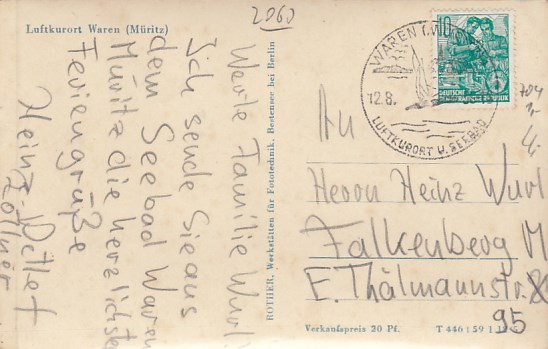 2060
Luftkurort Waren (Müritz)
Werte Familie Wurl
Ich sende Sie aus
dem Seebad Waren
Müritz die herzlichsten
Feriengrüße
Heinz-Detlef
Zöllner
ROTHER, Werkstätten für Fototechnik, Bestensee bei Berlin
WAREN (MÜRITZ)
12.8.
LUFTKURORT U. SEEBAD
10
DEUTSCHE
DEMOKRATISCHE REPUBLIK
704
An
Herrn Heinz Wurl
Falkenberg M
E. Thälmannstr.
95
Verkaufspreis 20 Pf.
T 446 | 59 |